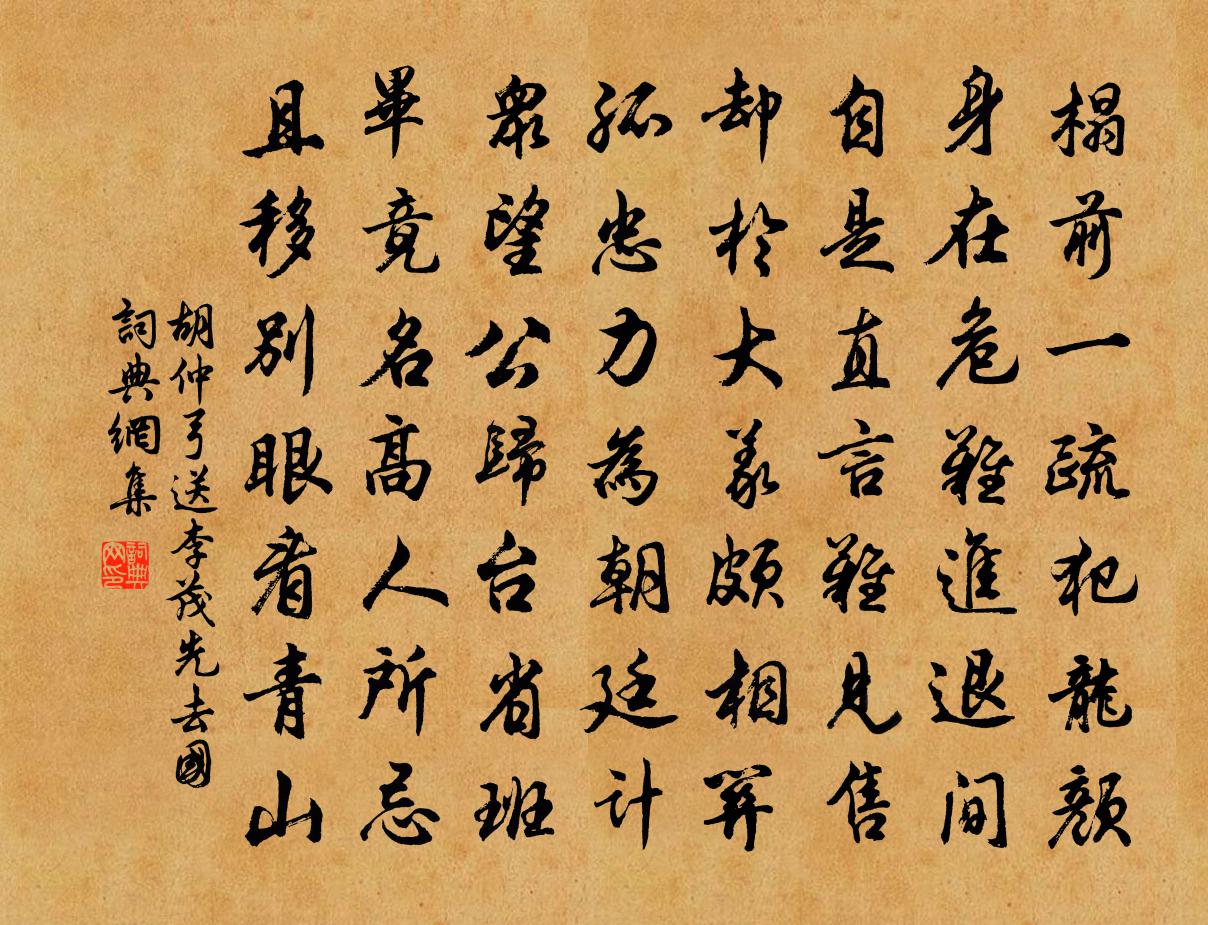 榻前一疏犯龍顏
身在危難進退間
自是直言難見售
却於大義頗相關
孤忠力為朝廷計
眾望公歸台省班
畢竟名高人所忌
且移別眼看青山
胡仲弓送李茂先去國
詞典網集
詞典網印